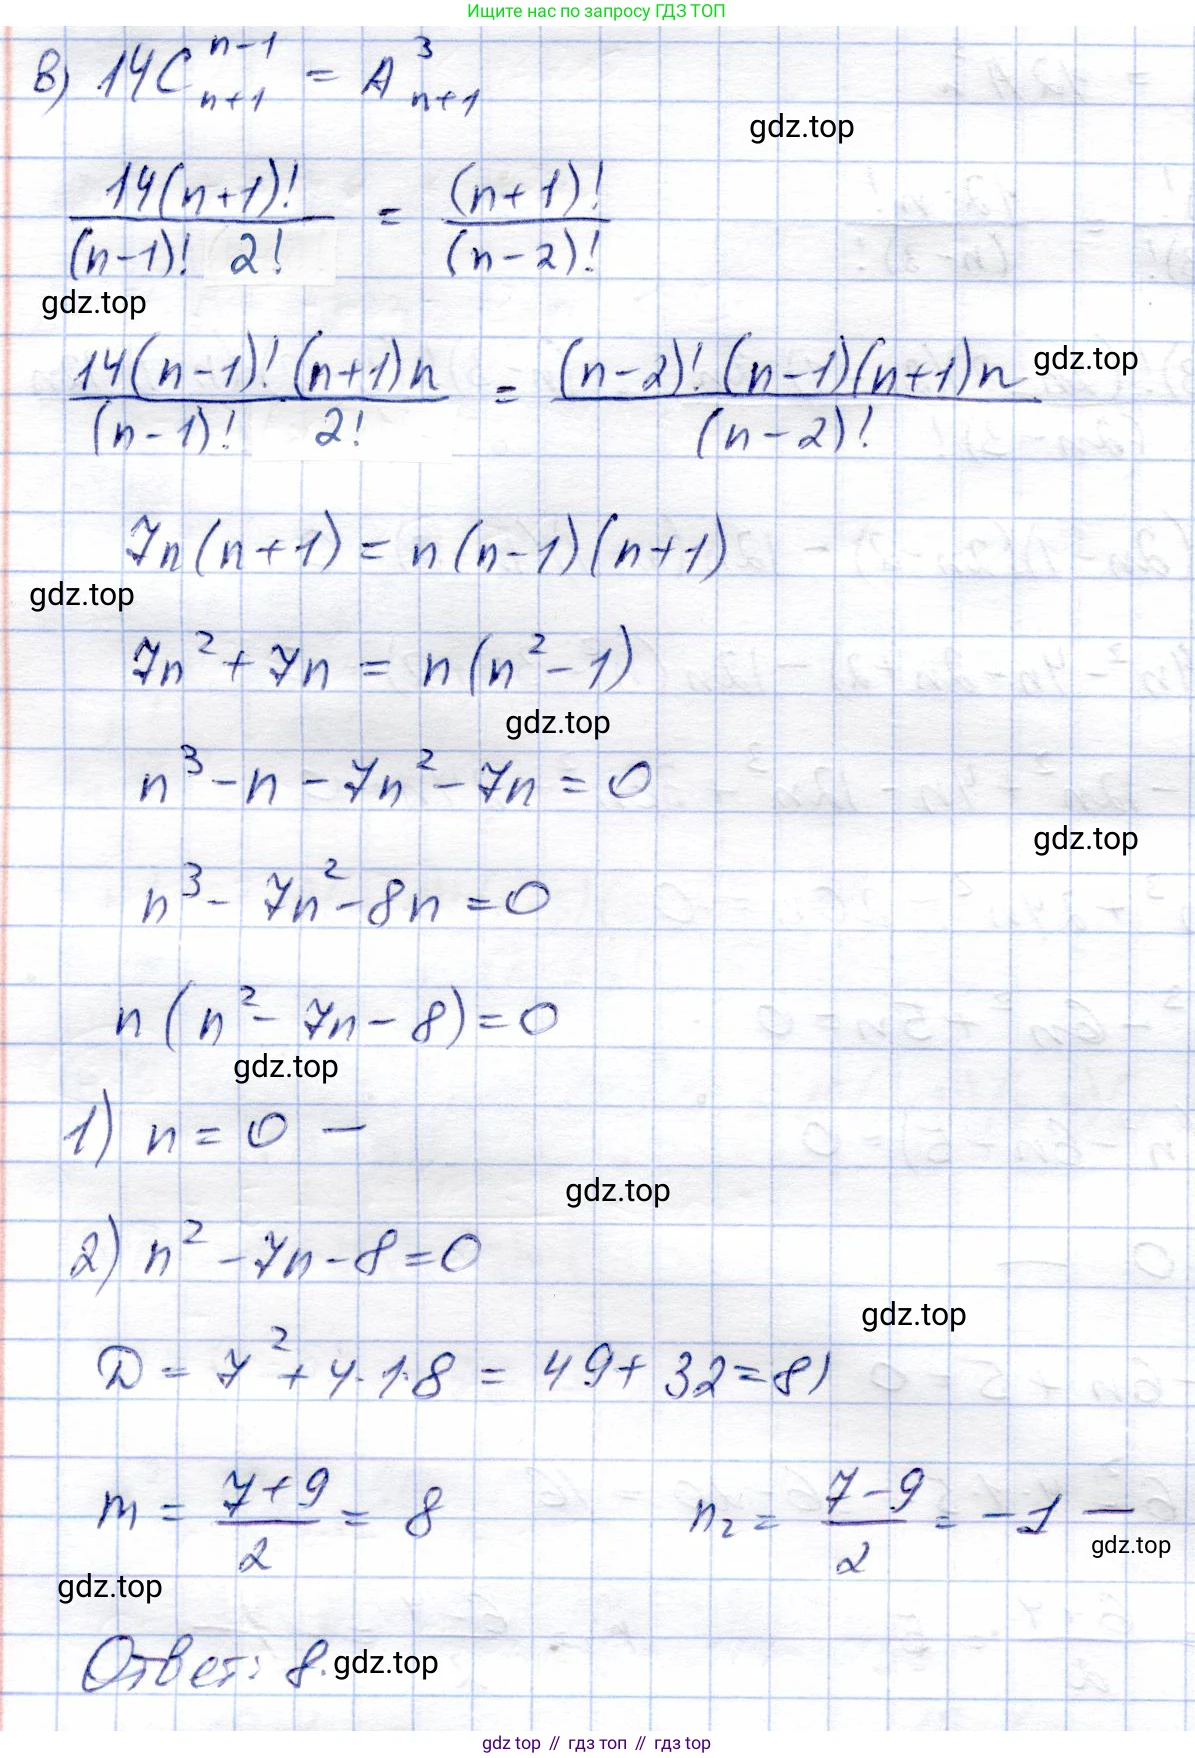 Ищите нас по запросу ГДЗ ТОП
в) 14C_{n+1}^{n-1} = A_{n+1}^{3}
gdz.top
14(n+1)! / (n-1)! 2! = (n+1)! / (n-2)!
gdz.top
14(n-1)! (n+1)n / (n-1)! 2! = (n-2)! (n-1)(n+1)n / (n-2)!
gdz.top
7n(n+1) = n(n-1)(n+1)
gdz.top
7n² + 7n = n(n²-1)
gdz.top
n³ - n - 7n² - 7n = 0
gdz.top
n³ - 7n² - 8n = 0
n(n² - 7n - 8) = 0
gdz.top
1) n = 0 —
gdz.top
2) n² - 7n - 8 = 0
gdz.top
D = 7² + 4·1·8 = 49 + 32 = 81
n₁ = (7+9)/2 = 8 n₂ = (7-9)/2 = -1 —
gdz.top
gdz.top
Ответ: 8.
gdz.top
gdz top // гдз топ // гдз top